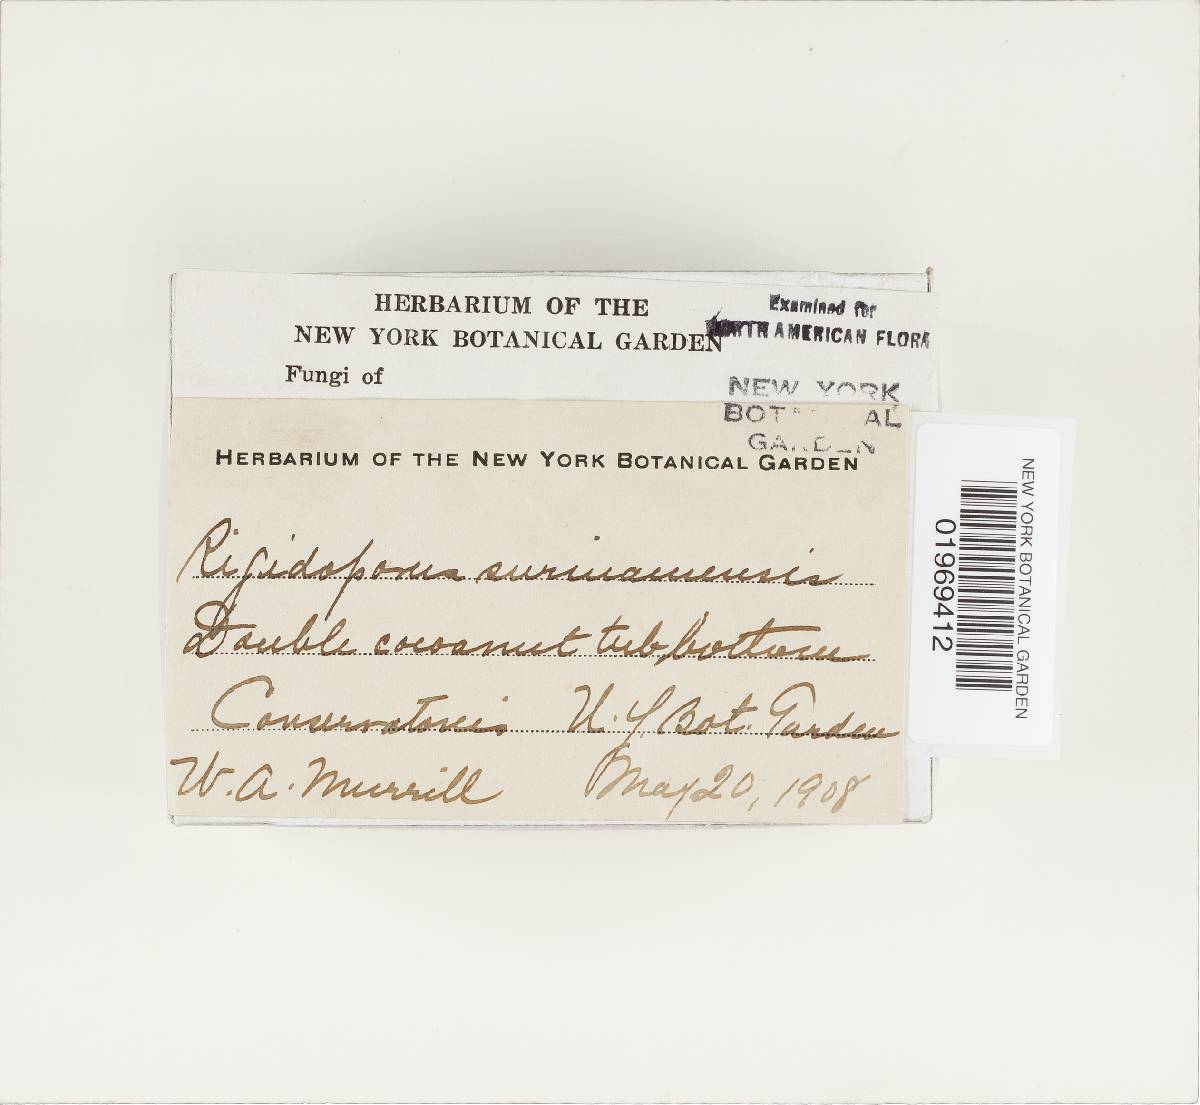 HERBARIUM OF THE
NEW YORK BOTANICAL GARDEN
Fungi of
Examined for
NORTH AMERICAN FLORA
NEW YORK
BOTANICAL
GARDEN
HERBARIUM OF THE NEW YORK BOTANICAL GARDEN
Rigidoporus surinamensis
Double cocoanut tub, bottom
Conservatories N. Y. Bot. Garden
W. A. Murrill May 20, 1908
NEW YORK BOTANICAL GARDEN
01969412